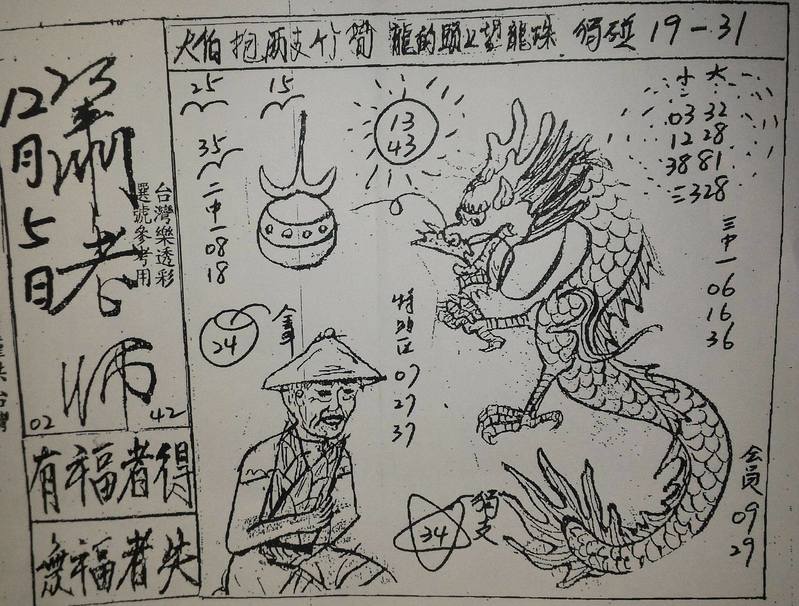 大伯抱兩支竹筍 龍的頭上望龍珠 獨碰 19-31
12月5日
老師
02
42
台灣樂透彩
選號參考用
有福者得
無福者失
25
15
35
二中一
08
18
13
43
24
特別區
07
27
37
34
獨支
小 大
二
03 32
12 28
38 81
三328
三中一
06
16
36
会員
09
29